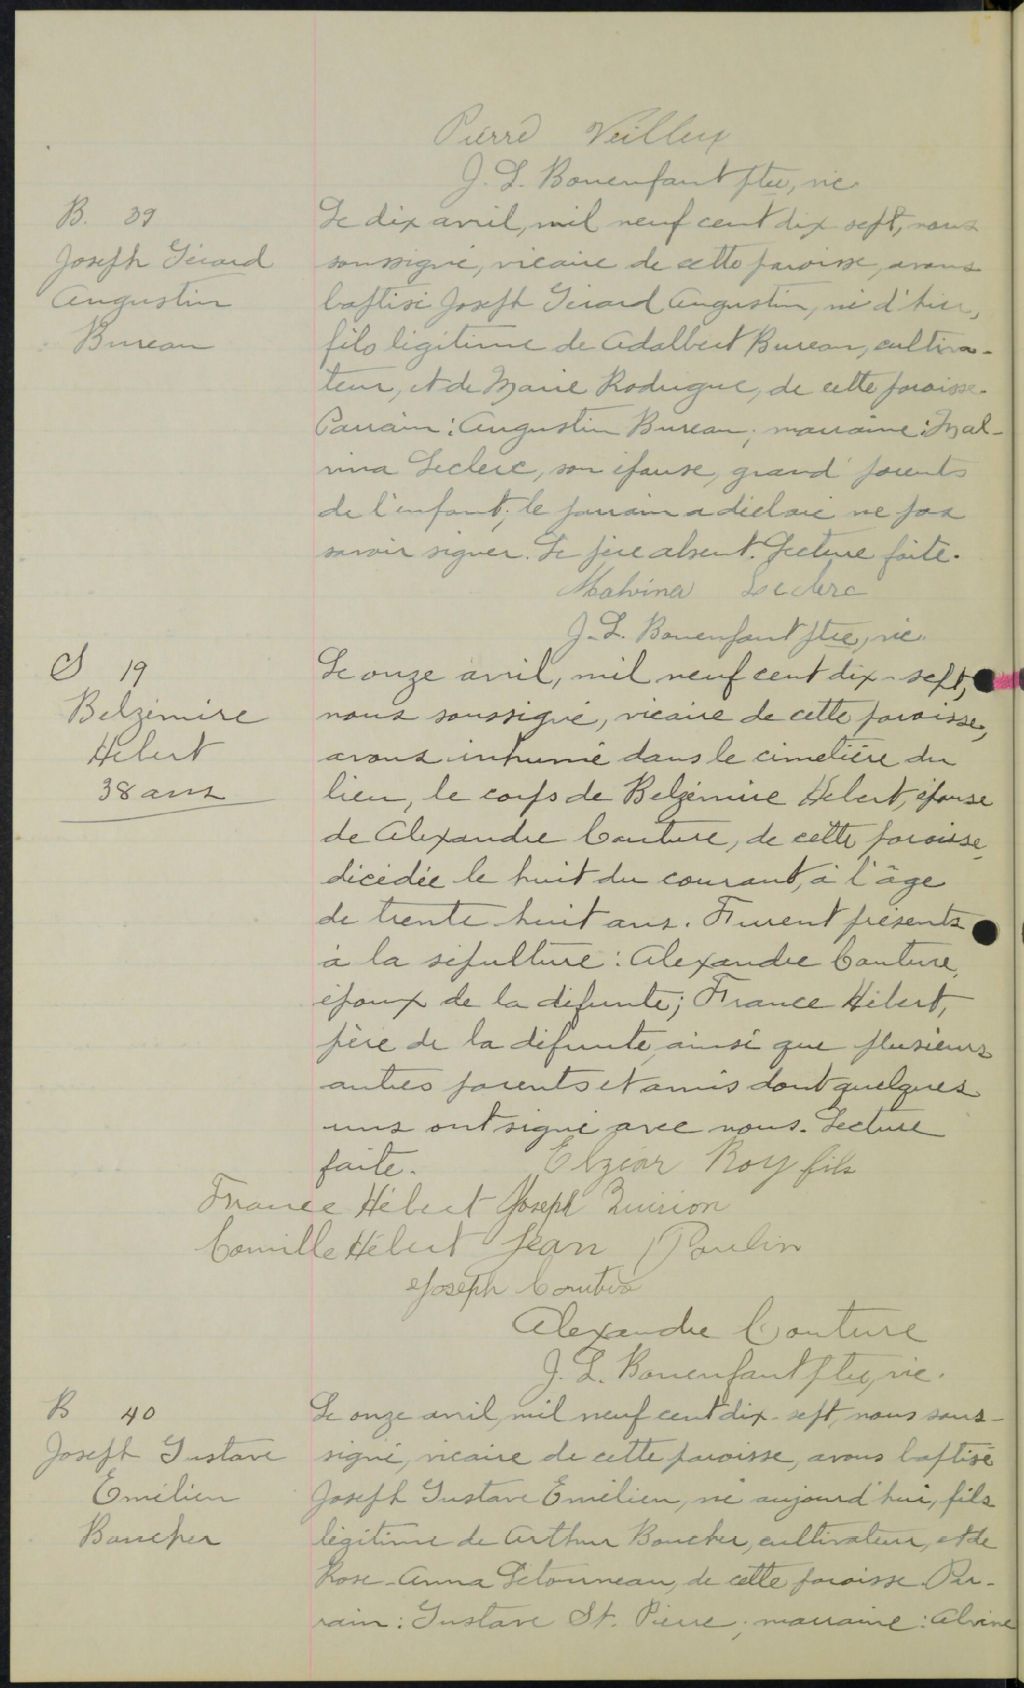 Pierre Veilleux
J. L. Bonenfant ptre, vic.
B. 39
Joseph Gérard
Augustin
Bureau
Le dix avril, mil neuf cent dix-sept, nous
soussigné, vicaire de cette paroisse, avons
baptisé Joseph Gérard Augustin, né d'hier,
fils légitime de Adalbert Bureau, cultiva-
teur, et de Marie Rodrigue, de cette paroisse.
Parrain: Augustin Bureau; marraine: Mal-
vina Leclerc, son épouse, grand parents
de l'enfant; le parrain a déclaré ne pas
savoir signer. Le père absent. Lecture faite.
Malvina Leclerc
J. L. Bonenfant ptre, vic.
S 19
Belzémire
Hébert
38 ans
Le onze avril, mil neuf cent dix-sept,
nous soussigné, vicaire de cette paroisse,
avons inhumé dans le cimetière du
lieu, le corps de Belzémire Hébert, épouse
de Alexandre Couture, de cette paroisse,
décédée le huit du courant, à l'âge
de trente huit ans. Furent présents
à la sépulture: Alexandre Couture,
époux de la défunte; France Hébert,
père de la défunte, ainsi que plusieurs
autres parents et amis dont quelques
uns ont signé avec nous. Lecture
faite. Elzéar Roy fils
France Hébert Joseph
Camille Hébert Jean Poulin
Joseph
Alexandre Couture
J. L. Bonenfant ptre, vic.
B 40
Joseph Gustave
Emélien
Boucher
Le onze avril, mil neuf cent dix-sept, nous sous-
signé, vicaire de cette paroisse, avons baptisé
Joseph Gustave Emélien, né aujourd'hui, fils
légitime de Arthur Boucher, cultivateur, et de
Rose-Anna Létourneau, de cette paroisse. Par-
rain: Gustave St. Pierre; marraine: Alvine